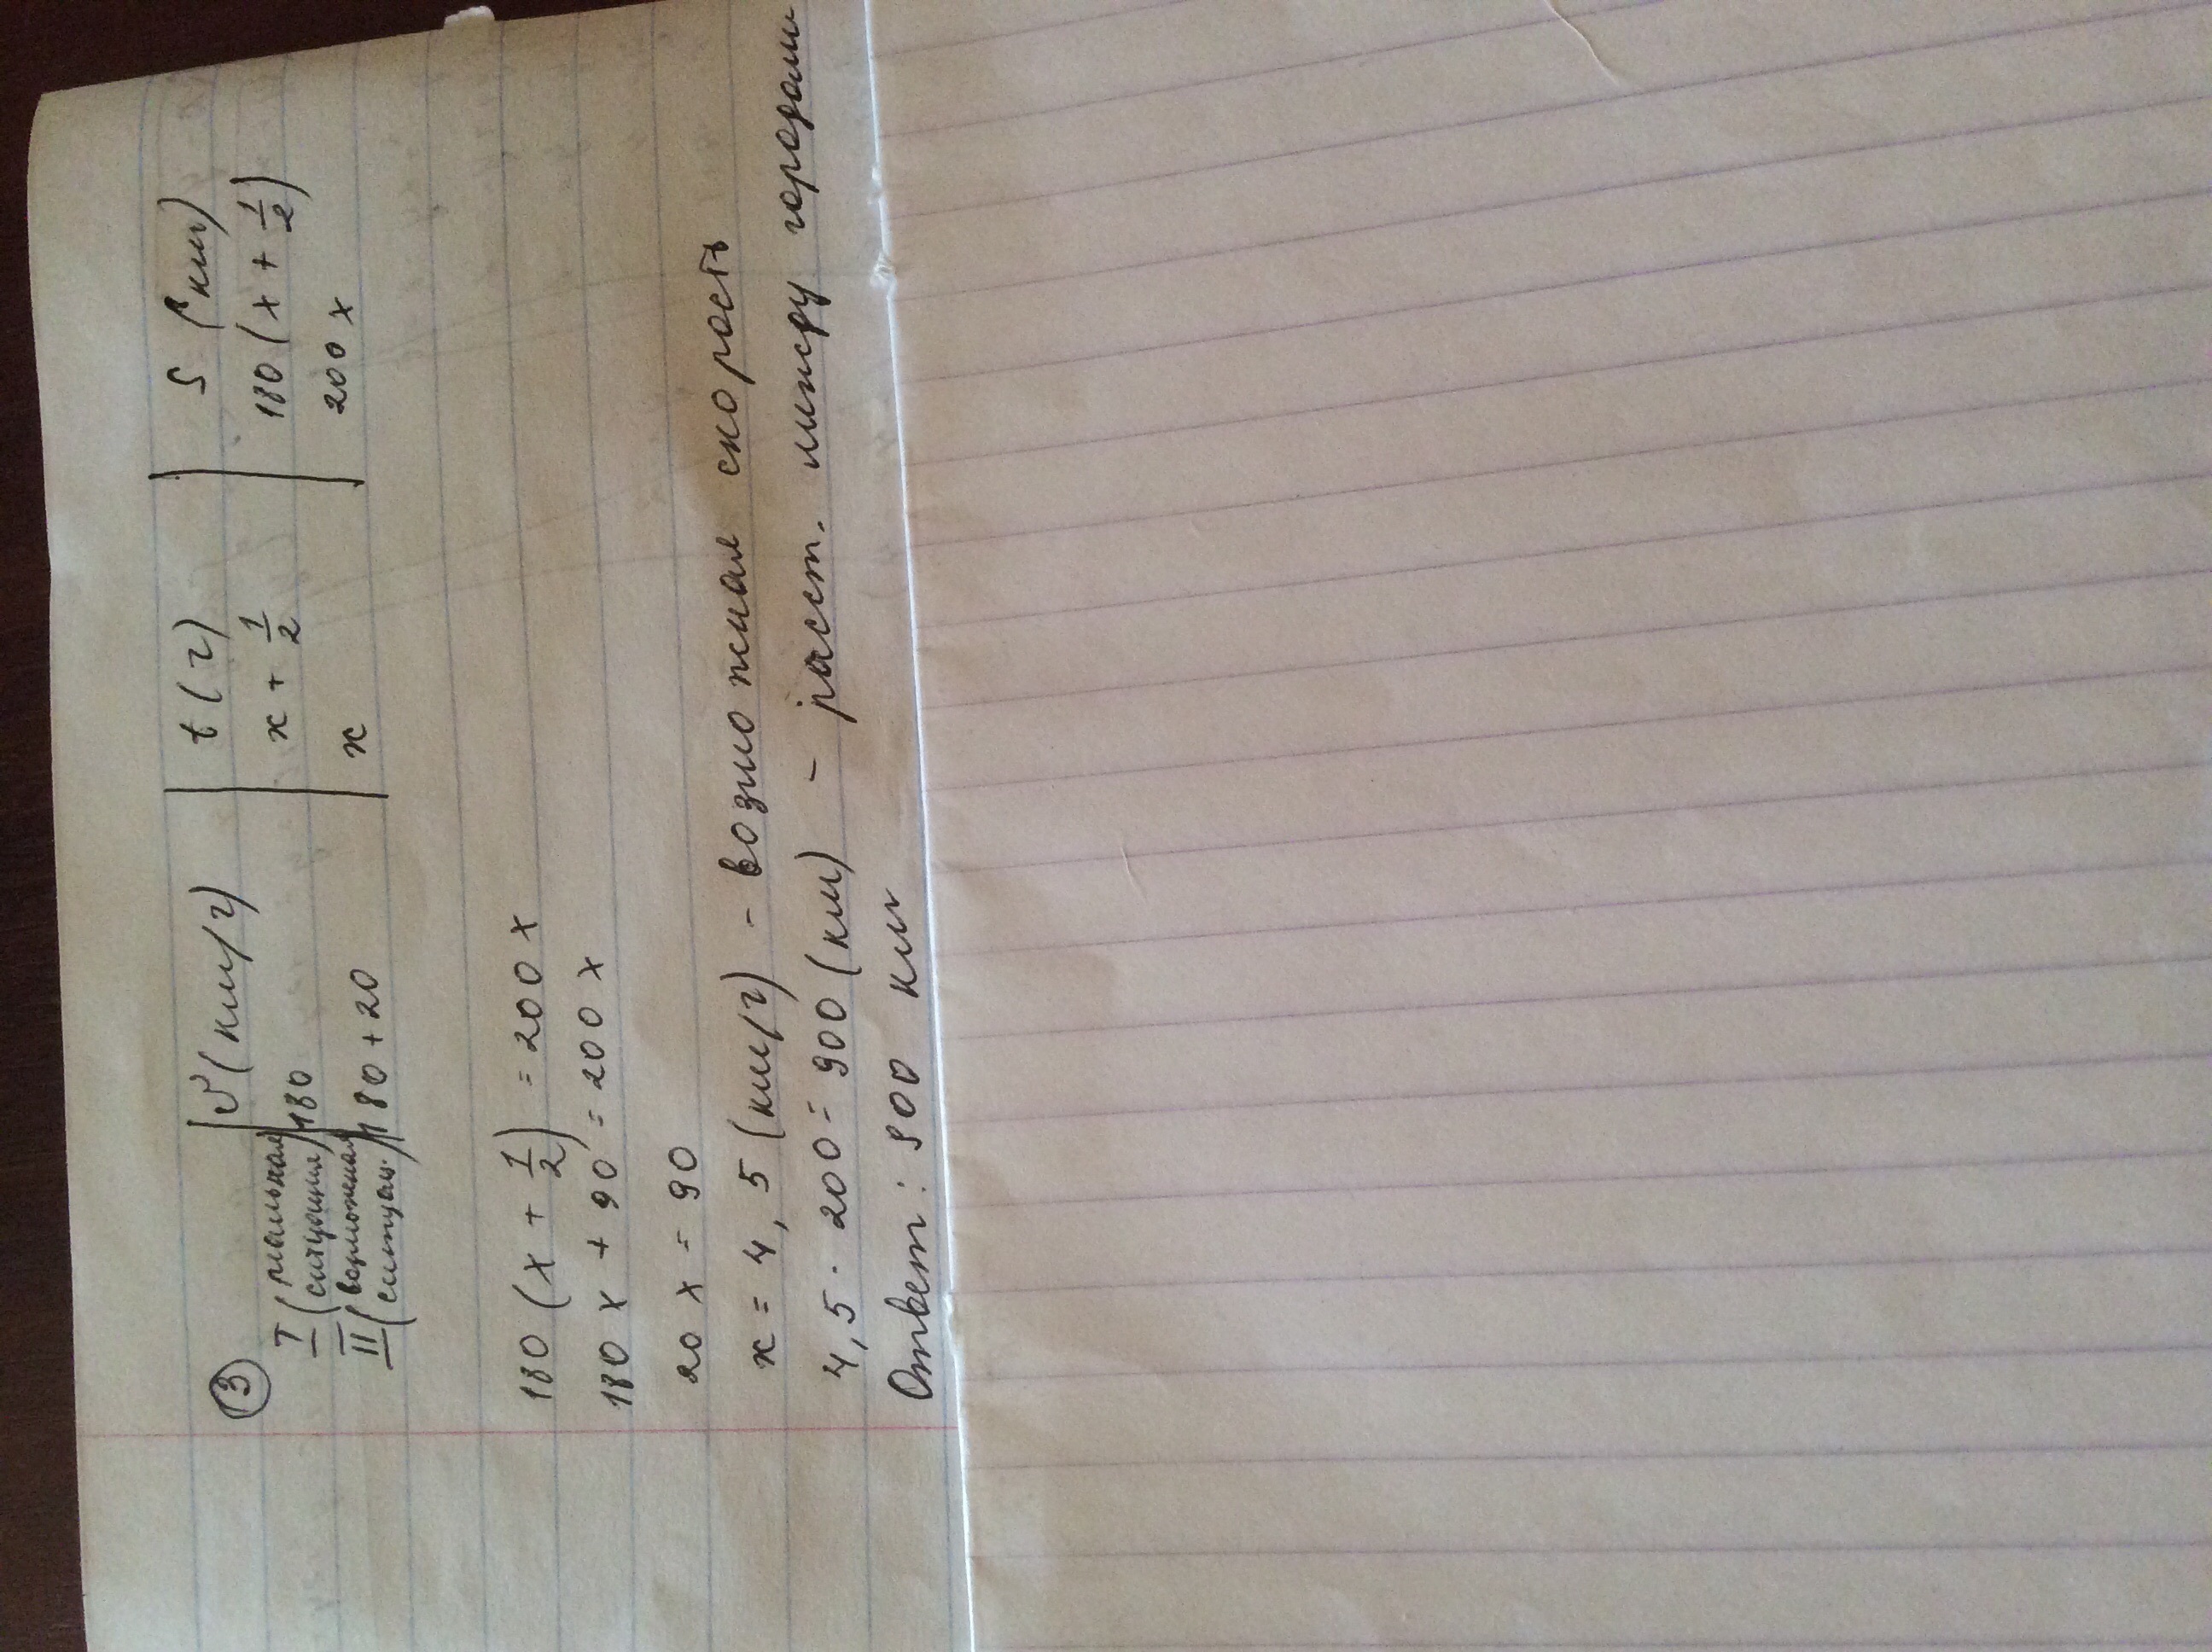 ③ | v (км/ч) | t (ч) | S (км)
I (реальная ситуация) | 180 | x + 1/2 | 180 (x + 1/2)
II (возможная ситуац.) | 180 + 20 | x | 200 x
180 (x + 1/2) = 200 x
180 x + 90 = 200 x
20 x = 90
x = 4,5 (км/ч) - возможная скорость
4,5 · 200 = 900 (км) - расст. между городами
Ответ: 900 км